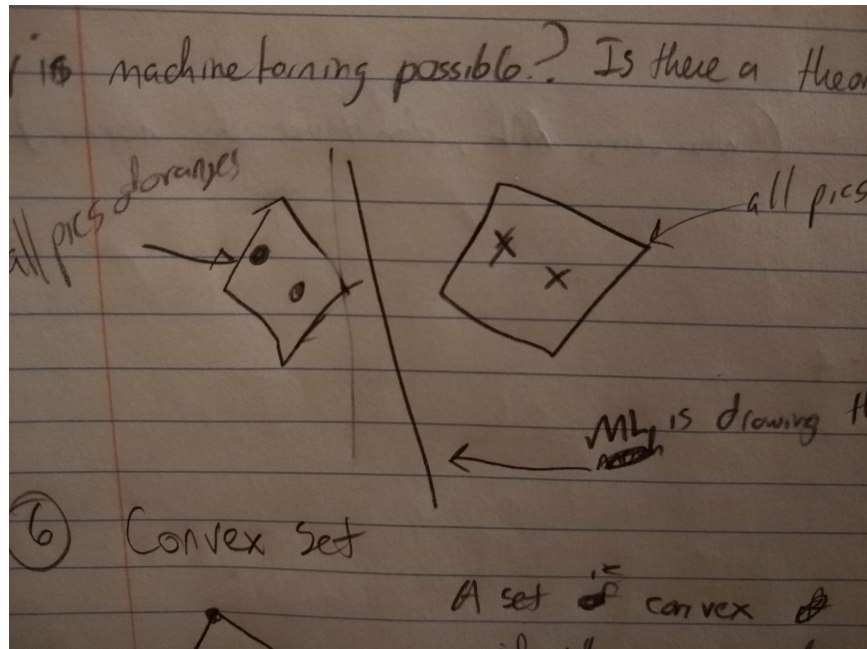 is machine learning possible? Is there a theor
all pics of oranges
all pics
ML is drawing th
6 Convex set
A set is convex